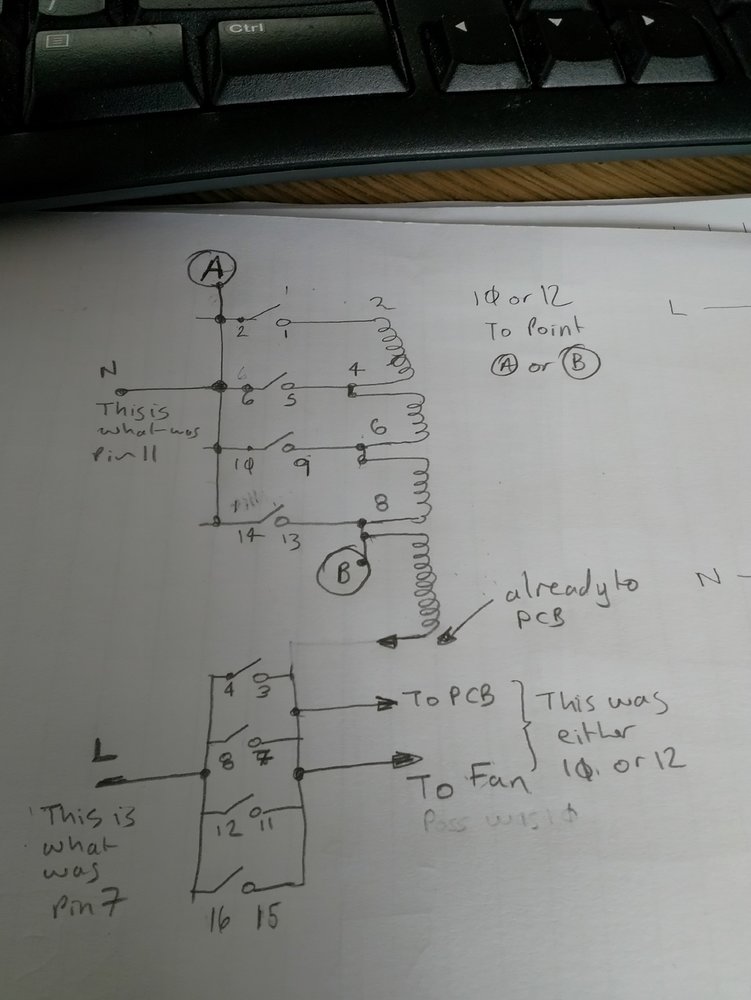 Ctrl
A
1
2
2
1
10 or 12
To Point
A or B
L
N
This is
what was
pin 11
6
6
5
4
10
9
6
14
13
8
B
already to
PCB
N
4
3
To PCB
This was
either
10 or 12
8
7
L
To Fan
Poss was 10
This is
what
was
pin 7
12
11
16
15